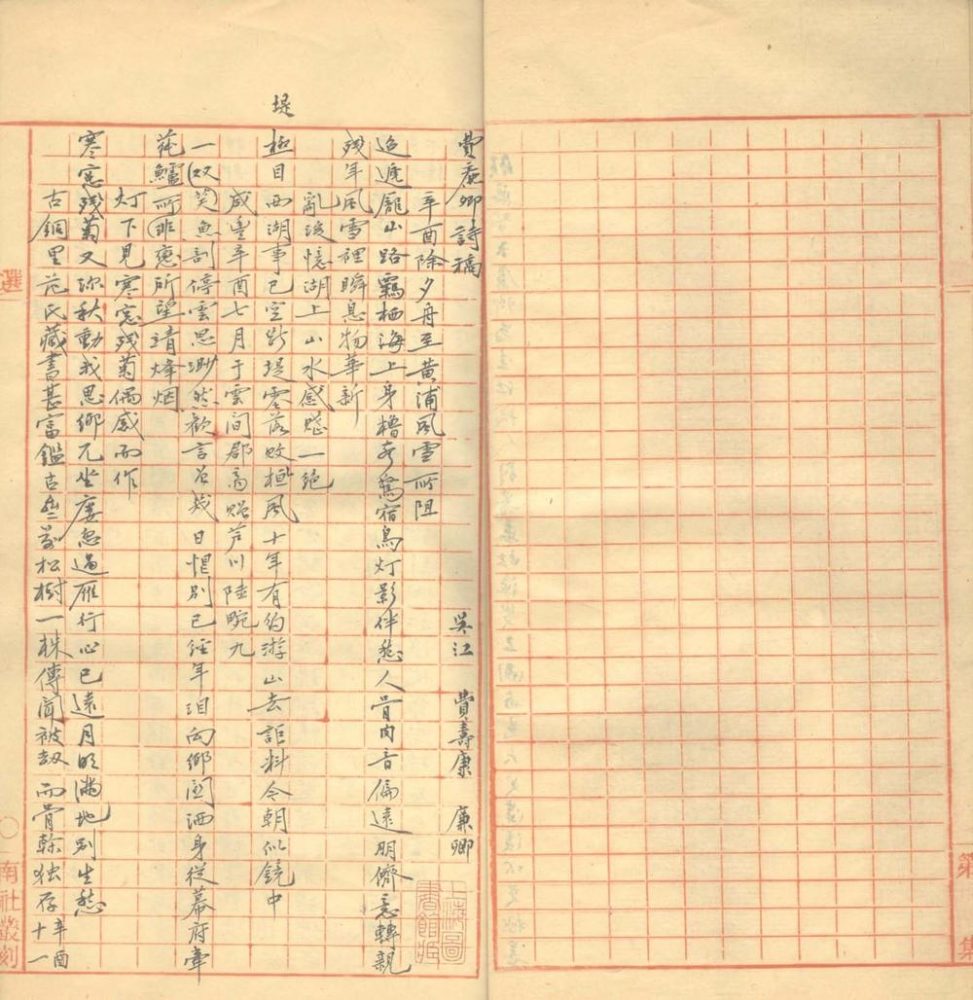 費廉卿詩稿
吳江 費壽康 廉卿
辛酉除夕舟至黃浦風雪所阻
迢遞龐山路羈栖海上身櫓聲驚宿鳥灯影伴愁人骨肉音偏遠朋儕意轉親
残年風雪裡瞬息物華新
亂後憶湖上山水感賦一絕
堤
極目西湖事已空斷堤零落敗楓風十年有約游山去詎料今朝似鏡中
咸豐辛酉七月于雲間郡高贈芦川陸畹九
一双笑魚刻停雲思渺然歡言曾幾日惜別已經年泪向鄉関洒身從幕府牽
蒓鱸所非恋所望靖烽烟
灯下見寒窓残菊偶感而作
寒窓残菊又深秋動我思鄉兀坐廔忽過雁行心已遠月明滿地别生愁
古銅里范氏藏書甚富鑑古堂前松樹一株傳聞被劫而骨幹独存辛酉十一
選
南社叢刻
第 集
上海圖書館藏